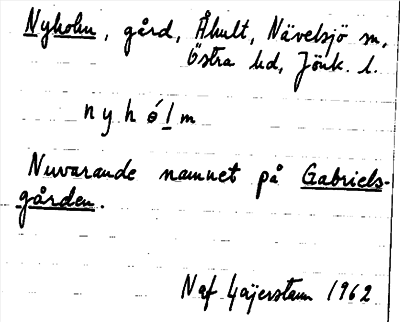 Nyholm, gård, Åhult, Nävelsjö sn,
Östra hd, Jönk. l.
nyhólm
Nuvarande namnet på Gabriels-
gården.
N af Gajerstam 1962